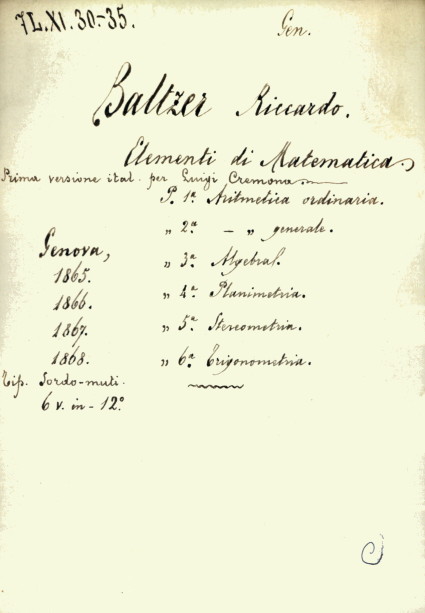 7L.XI.30-35.
Gen.
Baltzer Riccardo.
Elementi di Matematica.
Prima versione ital. per Luigi Cremona.
P. 1ª Aritmetica ordinaria.
„ 2ª — „ generale.
Genova,
„ 3ª Algebra.
1865.
„ 4ª Planimetria.
1866.
„ 5ª Stereometria.
1867.
„ 6ª Trigonometria.
1868.
Tip. Sordo-muti.
6 v. in-12º.